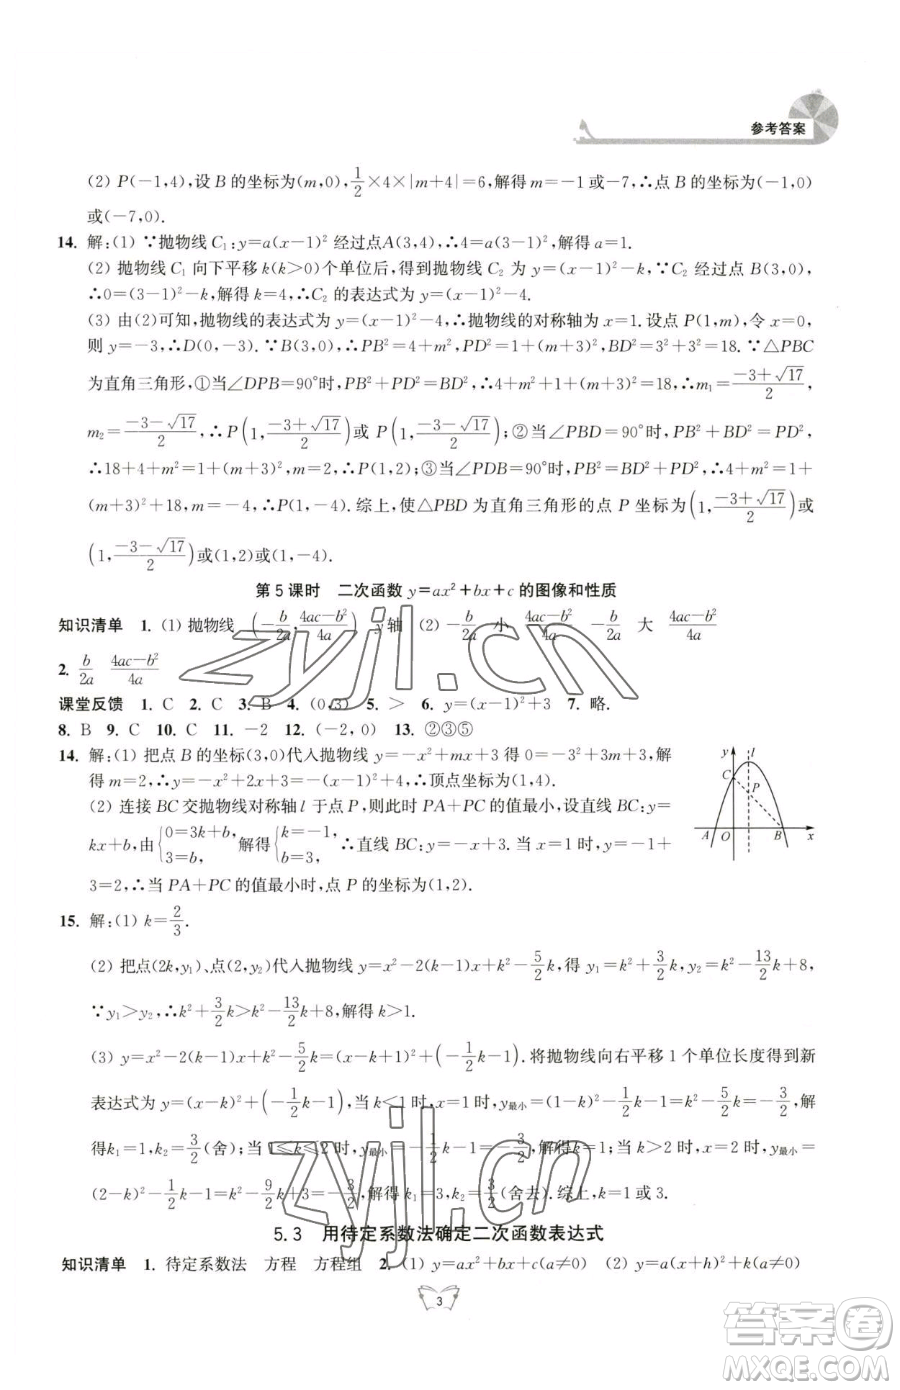 参考答案
(2) P(-1,4),设 B 的坐标为(m,0),1/2×4×|m+4|=6,解得 m=-1或-7,∴点 B 的坐标为(-1,0)
或(-7,0).
14. 解:(1) ∵抛物线 C₁:y=a(x-1)² 经过点A(3,4),∴4=a(3-1)²,解得 a=1.
(2) 抛物线 C₁ 向下平移 k(k>0)个单位后,得到抛物线 C₂ 为 y=(x-1)²-k.∵C₂ 经过点 B(3,0),
∴0=(3-1)²-k,解得 k=4,∴C₂ 的表达式为 y=(x-1)²-4.
(3) 由(2)可知,抛物线的表达式为 y=(x-1)²-4,∴抛物线的对称轴为 x=1.设点 P(1,m),令 x=0,
则 y=-3,∴D(0,-3).∵B(3,0),∴PB²=4+m²,PD²=1+(m+3)²,BD²=3²+3²=18.∵△PBC
为直角三角形,①当∠DPB=90°时,PB²+PD²=BD²,∴4+m²+1+(m+3)²=18,∴m₁=(-3+√17)/2,
m₂=(-3-√17)/2,∴P(1,(-3+√17)/2)或 P(1,(-3-√17)/2);②当∠PBD=90°时,PB²+BD²=PD²,
∴18+4+m²=1+(m+3)²,m=2,∴P(1,2);③当∠PDB=90°时,PB²=PD²+BD²,∴4+m²=1+
(m+3)²+18,m=-4,∴P(1,-4).综上,使△PBD 为直角三角形的点 P 坐标为(1,(-3+√17)/2)或
(1,(-3-√17)/2)或(1,2)或(1,-4).
第 5 课时 二次函数 y=ax²+bx+c 的图像和性质
知识清单 1. (1) 抛物线 (-b/2a,(4ac-b²)/4a) y 轴 (2) -b/2a 小 (4ac-b²)/4a -b/2a 大 (4ac-b²)/4a
2. b/2a (4ac-b²)/4a
课堂反馈 1. C 2. C 3. B 4. (0,3) 5. > 6. y=(x-1)²+3 7. 略.
8. B 9. C 10. C 11. -2 12. (-2,0) 13. ②③⑤
14. 解:(1) 把点 B 的坐标(3,0)代入抛物线 y=-x²+mx+3 得 0=-3²+3m+3,解
得 m=2,∴y=-x²+2x+3=-(x-1)²+4,∴顶点坐标为(1,4).
(2) 连接 BC 交抛物线对称轴 l 于点 P,则此时 PA+PC 的值最小,设直线 BC:y=
kx+b,由{0=3k+b, 3=b, 解得{k=-1, b=3, ∴直线 BC:y=-x+3,当 x=1时,y=-1+
3=2,∴当 PA+PC 的值最小时,点 P 的坐标为(1,2).
y l C P A O B x
15. 解:(1) k=2/3.
(2) 把点(2k,y₁)、点(2,y₂)代入抛物线 y=x²-2(k-1)x+k²-5/2k,得 y₁=k²+3/2k,y₂=k²-13/2k+8,
∵y₁>y₂,∴k²+3/2k>k²-13/2k+8,解得 k>1.
(3) y=x²-2(k-1)x+k²-5/2k=(x-k+1)²+(-1/2k-1).将抛物线向右平移 1 个单位长度得到新
表达式为 y=(x-k)²+(-1/2k-1).当 k<1时,y最小=(1-k)²-1/2k-1=k²-5/2k=-3/2,解
得 k₁=1,k₂=3/2(舍);当 1≤k≤2 时,y最小=-1/2k-1=-3/2,解得 k=1;当 k>2 时,y最小=
(2-k)²-1/2k-1=k²-9/2k+3=-3/2,解得 k₁=3,k₂=3/2(舍去).综上,k=1 或 3.
5.3 用待定系数法确定二次函数表达式
知识清单 1. 待定系数法 方程 方程组 2. (1) y=ax²+bx+c(a≠0) (2) y=a(x+h)²+k(a≠0)
3
zyjl.cn
zyjl.cn
答案圈
MXQE.COM